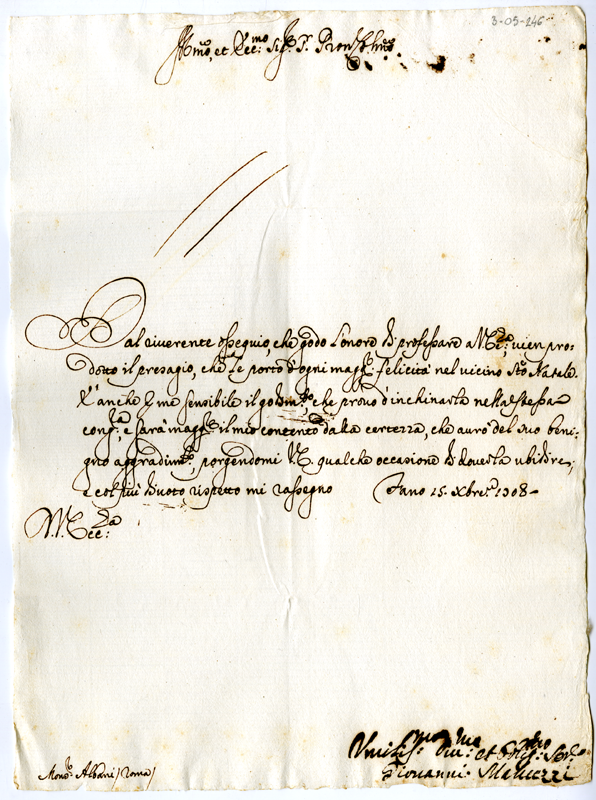 3-05-246
Ill.mo, et Ecc.mo Sig.r P.ron Col.mo
Dal riverente ossequio, che godo l'onore di professare a V. Ecc.za: vien pro-
dotto il presagio, che Le porto d'ogni magg.r felicità nel vicino S.to Natale.
E' anche per me sensibile il godim.to, che provo d'inchinarla nella stessa
cong.ra, e sarà magg.r il mio contento dalla certezza, che aurò del suo beni-
gno aggradim.to, porgendomi V.E. qualche occasione di doverla ubidire,
e col più divoto rispetto mi rassegno Fano 15. Xbre 1708-
V. Ecc.za:
Umiliss.mo Div.mo: et Oblig.mo: Ser.re
Giovanni
Mons.r Albani / Roma /